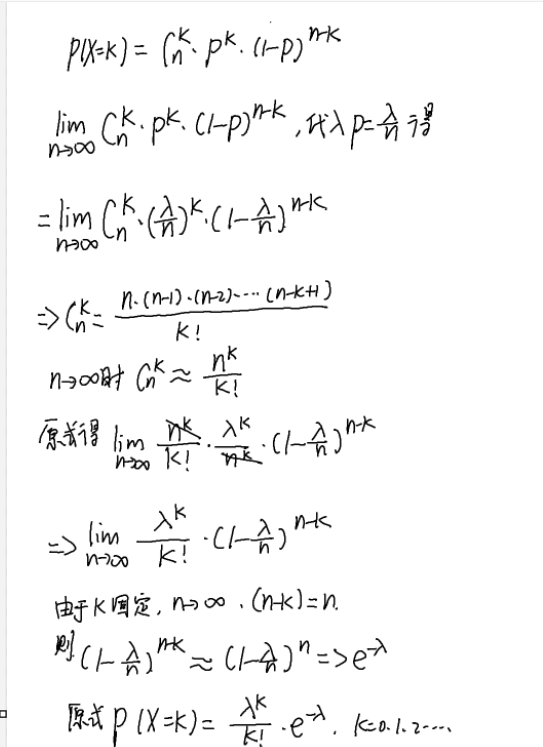 P(X=k) = C_n^k · p^k · (1-p)^{n-k}
lim_{n→∞} C_n^k · p^k · (1-p)^{n-k}, 代入 p=λ/n 得
= lim_{n→∞} C_n^k · (λ/n)^k · (1-λ/n)^{n-k}
=> C_n^k = n·(n-1)·(n-2)·…·(n-k+1) / k!
n→∞时 C_n^k ≈ n^k/k!
原式得 lim_{n→∞} n^k/k! · λ^k/n^k · (1-λ/n)^{n-k}
=> lim_{n→∞} λ^k/k! · (1-λ/n)^{n-k}
由于k固定, n→∞, (n-k)=n.
则 (1-λ/n)^{n-k} ≈ (1-λ/n)^n => e^{-λ}
原式 P(X=k) = λ^k/k! · e^{-λ}, k=0.1.2…..